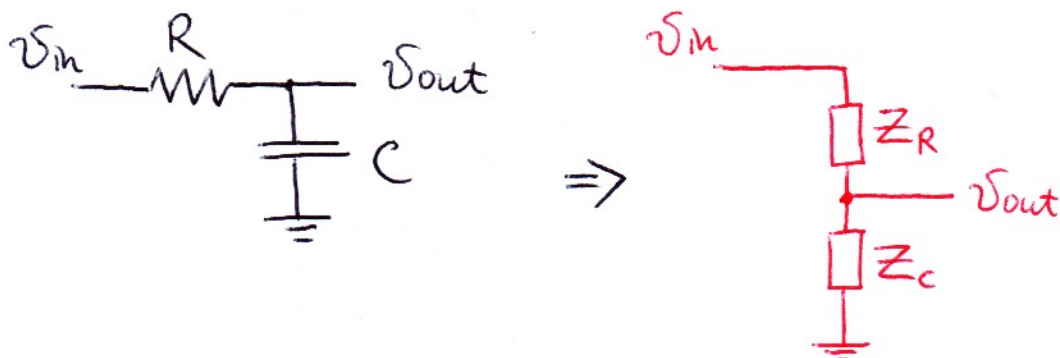 Vin
R
Vout
C
⇒
Vin
ZR
Vout
ZC